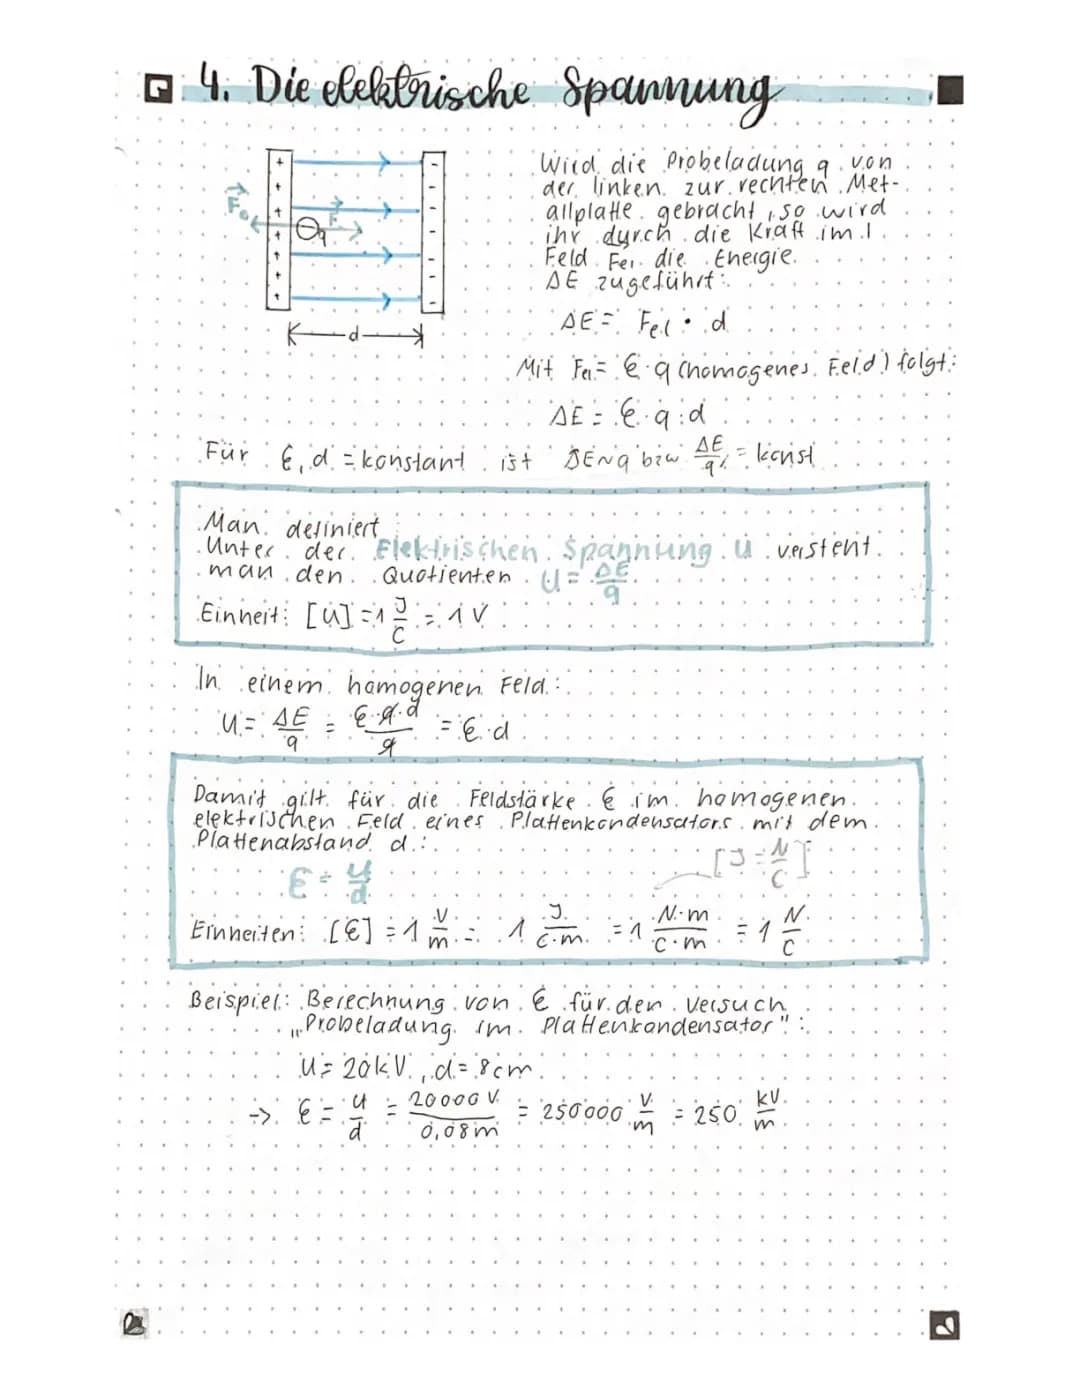 4. Die elektrische Spannung
Wird die Probeladung q von
der linken zur rechten Met-
allplatte gebracht, so wird
ihr durch die Kraft im
Feld Fel die Energie
ΔE zugeführt:
ΔE = Fel · d
Mit Fel = E · q (homogenes Feld) folgt:
ΔE = E · q · d
Für E, d = konstant ist ΔE ~ q bzw ΔE/q = konst
Man definiert
Unter der Elektrischen Spannung U versteht
man den Quotienten U = ΔE/q
Einheit: [U] = 1 J/C = 1 V
In einem homogenen Feld:
U = ΔE/q = E·q·d/q = E·d
Damit gilt für die Feldstärke E im homogenen
elektrischen Feld eines Plattenkondensators mit dem
Plattenabstand d:
[J = N/C]
E = U/d
Einheiten: [E] = 1 V/m = 1 J/C·m = 1 N·m/C·m = 1 N/C
Beispiel: Berechnung von E für den Versuch
"Probeladung im Plattenkondensator":
U = 20kV, d = 8cm
-> E = U/d = 20000 V/0,08m = 250000 V/m = 250 kV/m
+ + + + + + +
- - - - - - -
F
q
d